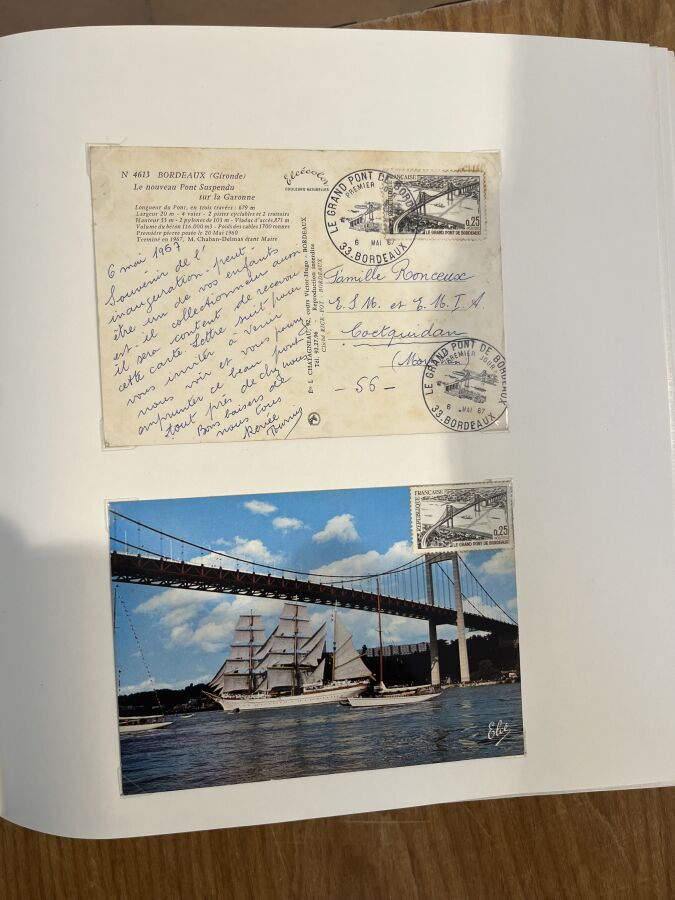 N 4613 BORDEAUX (Gironde)
Le nouveau Pont Suspendu
sur la Garonne
Longueur du Pont, en trois travées : 679 m
Largeur 20 m - 4 voies - 2 pistes cyclables et 2 trottoirs
Hauteur 53 m - 2 pylones de 103 m - Viaduc d'accès 871 m
Volume du béton (16.000 m3) - Poids des cables 1700 tonnes
Première pierre posée le 20 Mai 1960
Terminé en 1967, M. Chaban-Delmas étant Maire
Elcécolor
COULEURS NATURELLES
6 mai 1967
Souvenir de l'
inauguration. peut-
être un de vos enfants
est-il collectionneur aussi
il sera content de recevoir
cette carte. Lettre suit pour
vous inviter à venir
nous voir et vous pourrez
emprunter ce beau pont
tout près de chez nous
Bons baisers de
nous tous
Renée
Ets L. CHATAGNEAU, 92, cours Victor-Hugo - BORDEAUX
Tél. 92.27.96 - Reproduction interdite
LE GRAND PONT DE BORDEAUX
PREMIER JOUR
6 MAI 67
33.BORDEAUX
REPUBLIQUE FRANÇAISE
0,25
POSTES
LE GRAND PONT DE BORDEAUX
Famille Ronceux
E.S.M. et E.M.I.A
Coetquidan
- 56 -
LE GRAND PONT DE BORDEAUX
PREMIER JOUR
6 MAI 67
33.BORDEAUX
REPUBLIQUE FRANÇAISE
0,25
POSTES
LE GRAND PONT DE BORDEAUX
Elcé